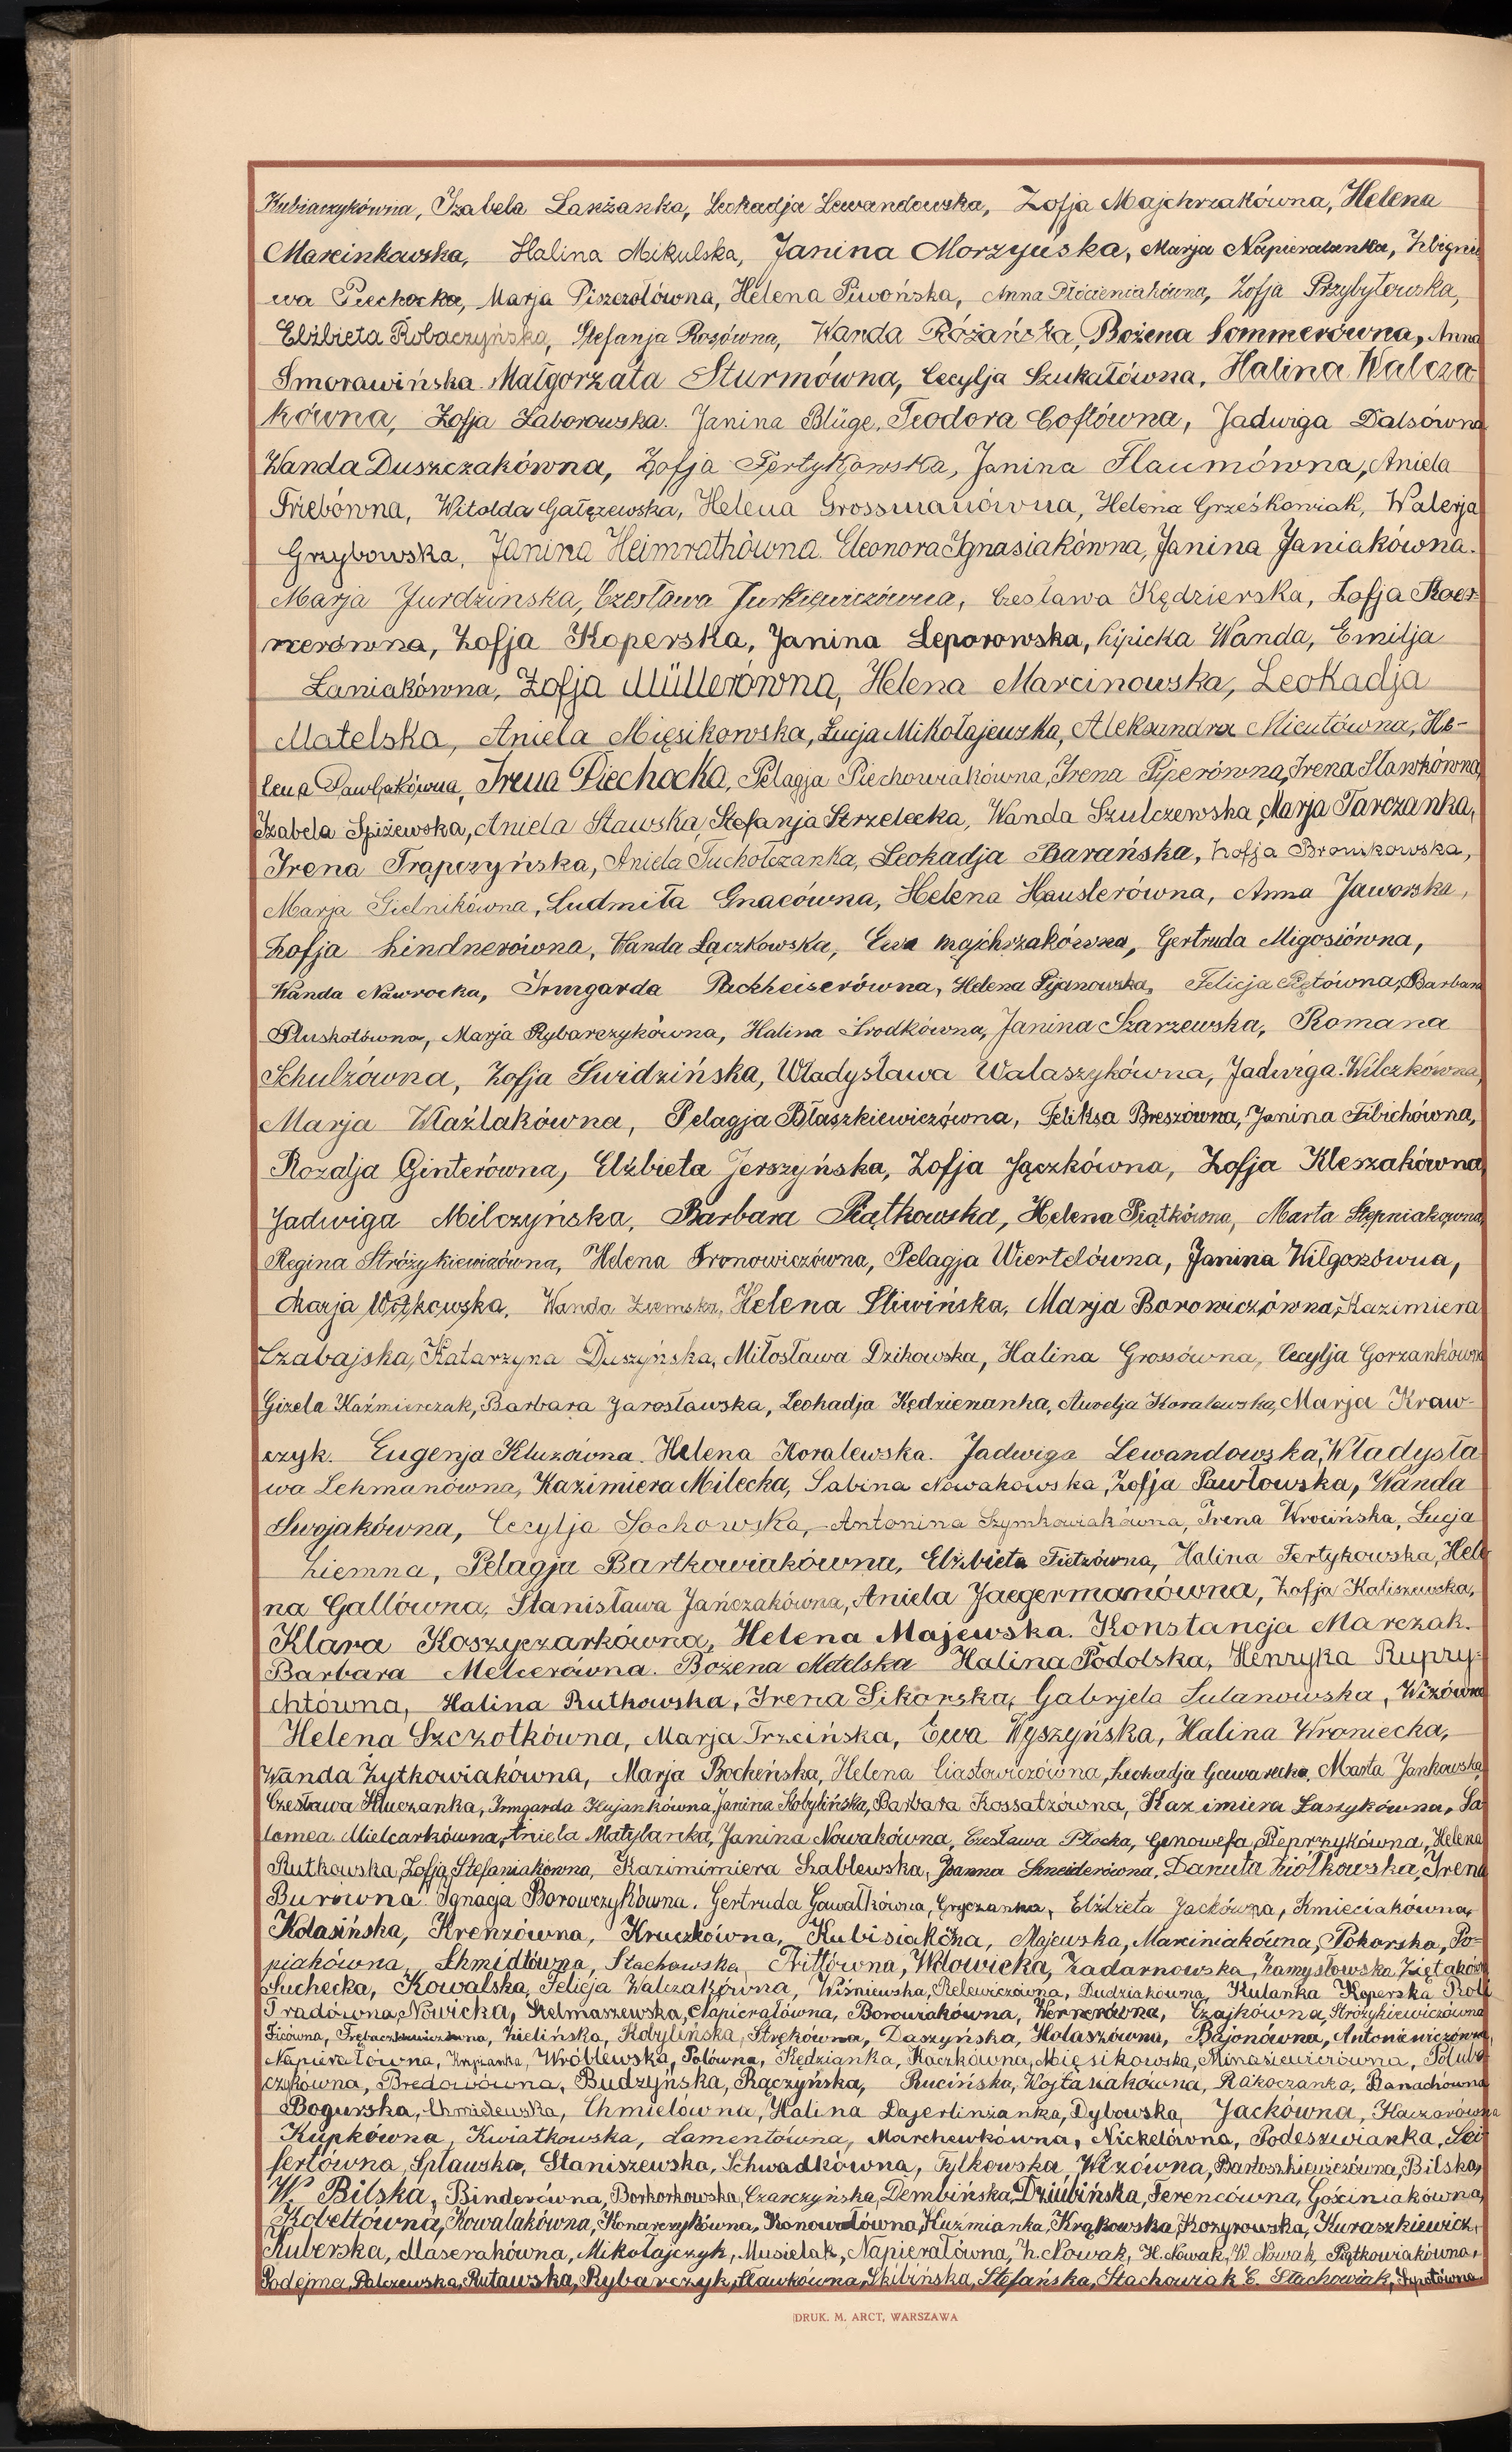 Kubiaczykówna, Izabela Lanżanka, Leokadja Lewandowska, Zofja Majchrzakówna, Helena
Marcinkowska, Halina Mikulska, Janina Morzyńska, Marja Napieralanka, Zbignie
wa Piechocka, Marja Piszczołówna, Helena Piwońska, Anna Płócieniakówna, Zofja Przybyłowska,
Elżbieta Robaczyńska, Stefanja Rosówna, Wanda Różańska, Bożena Sommerówna, Anna
Smorawińska. Małgorzata Sturmówna, Cecylja Szukałówna, Halina Walcza
kówna, Zofja Zaborowska. Janina Blüge, Teodora Coftówna, Jadwiga Dalsówna
Wanda Duszczakówna, Zofja Fertykowska, Janina Flaumówna, Aniela
Friebówna, Witolda Gałęzewska, Helena Grossmanówna, Helena Grześkowiak, Walerja
Grzybowska, Janina Heimrathówna. Eleonora Ignasiakówna, Janina Janiakówna.
Marja Jurdzinska, Czesława Jurkiewiczówna, Czesława Kędzierska, Zofja Koer-
nerówna, Zofja Koperska, Janina Leporowska, Lipicka Wanda, Emilja
Łaniakówna, Zofja Müllerówna, Helena Marcinowska, Leokadja
Matelska, Aniela Mięsikowska, Łucja Mikołajewska, Aleksandra Micutówna, He-
lena Pawlakówna, Irena Piechocka, Pelagja Piechowiakówna, Irena Piperówna, Irena Sławkówna,
Izabela Spiżewska, Aniela Stawska, Stefanja Strzelecka, Wanda Szulczewska, Marja Tarczanka,
Irena Trąpczyńska, Aniela Tucholczanka, Leokadja Barańska, Zofja Bronikowska,
Marja Gielnikówna, Ludmiła Gnacówna, Helena Hauslerówna, Anna Jaworska,
Zofja Lindnerówna, Wanda Łączkowska, Ewa Majchrzakówna, Gertruda Migosiówna,
Wanda Nawrocka, Irmgarda Packheiserówna, Helena Pijanowska, Felicja Piętówna, Barbara
Pluskotówna, Marja Rybarczykówna, Halina Środkówna, Janina Szarzewska, Romana
Schulzówna, Zofja Świdzińska, Władysława Walaszykówna, Jadwiga Wilczkówna,
Marja Wlaźlakówna, Pelagja Błaszkiewiczówna, Feliksa Breszówna, Janina Filichówna,
Rozalja Ginterówna, Elżbieta Jerszyńska, Zofja Jączkówna, Zofja Kleszakówna,
Jadwiga Milczyńska, Barbara Piątkowska, Helena Piątkówna, Marta Stępniakówna,
Regina Stróżykiewiczówna, Helena Tronowiczówna, Pelagja Wiertelówna, Janina Wilgoszówna,
Marja Wojtkowska, Wanda Ziemska, Helena Śliwińska, Marja Borowiczówna, Kazimiera
Czabajska, Katarzyna Duszyńska, Miłosława Dzikowska, Halina Grossówna, Cecylja Gorzankówna
Gizela Kaźmierczak, Barbara Jarosławska, Leokadja Kędzierzanka, Aurelja Koralewska, Marja Kraw-
czyk. Eugenja Kluzówna. Helena Koralewska. Jadwiga Lewandowska, Władysła
wa Lehmanówna, Kazimiera Milecka, Sabina Nowakowska, Zofja Pawłowska, Wanda
Swojakówna, Cecylja Sochowska, Antonina Szymkowiakówna, Irena Wrocińska, Łucja
Ziemna, Pelagja Bartkowiakówna, Elżbieta Fietzówna, Halina Fertykowska, Hele
na Gallówna, Stanisława Jańczakówna, Aniela Jaegermanówna, Zofja Kaliszewska,
Klara Koszyczarkówna, Helena Majewska. Konstancja Marczak.
Barbara Melcerówna. Bożena Metelska Halina Podolska, Henryka Rupry-
chtówna, Halina Rutkowska, Irena Sikorska, Gabrjela Sulanowska, Wizówna
Helena Szczotkówna, Marja Trzcińska, Ewa Wyszyńska, Halina Wroniecka,
Wanda Żytkowiakówna, Marja Bocheńska, Helena Ciastowiczówna, Leokadja Gawarecka, Marta Jankowska,
Czesława Kluczanka, Irmgarda Kujankówna, Janina Kobylińska, Barbara Kossatzówna, Kazimiera Łaszykówna, Sa
lomea Mielcarkówna, Aniela Matylanka, Janina Nowakówna, Czesława Płocka, Genowefa Pieprzykówna, Helena
Rutkowska, Zofja Stefaniakówna, Kazimimiera Szablewska, Joanna Szneiderówna, Danuta Ziółkowska, Irena
Burówna. Ignacja Borowczykówna. Gertruda Gawałkówna, Gryczanka, Elżbieta Jackówna, Kmieciakówna,
Kolasińska, Krenzówna, Kruczkówna, Kubisiakówna, Majewska, Marciniakówna, Pokorska, Po-
piakówna, Shmidtówna, Stachowska, Trittówna, Wdowicka, Zadarnowska, Zamysłowska, Ziętaków
Suchecka, Kowalska, Felicja Walczakówna, Wiśniewska, Relewiczówna, Dudziakówna, Kulanka Koperska Król
Tradówna, Nowicka, Szelmaszewska, Napierałówna, Borowiakówna, Wernerówna, Czajkówna, Stróżykiewiczówna
Ficówna, Trębaczkiewiczówna, Zielińska, Kobylińska, Stręków­na, Daszyńska, Hałaszówna, Bajonówna, Antoniewiczówna,
Napierałówna, Kryżanka, Wróblewska, Polówna, Kędzianka, Kaczkówna, Mięsikowska, Minasiewiczówna, Połub
czykówna, Bredowówna, Budzyńska, Rączyńska, Rucińska, Wojtasiakówna, Rakoczanka, Banachówna
Bogurska, Chmielewska, Chmielówna, Halina Dajerlinżanka, Dybowska, Jackówna, Kaczorówna
Kupkówna, Kwiatkowska, Lamentówna, Marchewkówna, Nickelówna, Podeszwianka, Sei
fertówna, Spławska, Staniszewska, Schwadkówna, Tylkowska, Wizówna, Bartoszkiewiczówna, Bilska,
W. Bilska, Binderówna, Borkorkowska, Czarczyńska, Dembińska, Dziubińska, Ferencówna, Gościniakówna,
Kobeltówna, Kowalakówna, Konarczykówna, Konowałówna, Kuźmianka, Krąkowska, Kozyrowska, Kuraszkiewicz,
Kuberska, Maserakówna, Mikołajczyk, Musielak, Napierałówna, Z. Nowak, H. Nowak, W. Nowak, Piątkowiakówna,
Podejma, Palczewska, Rutawska, Rybarczyk, Sławkówna, Skibińska, Stefańska, Stachowiak E. Stachowiak, Sypotówna
DRUK. M. ARCT, WARSZAWA